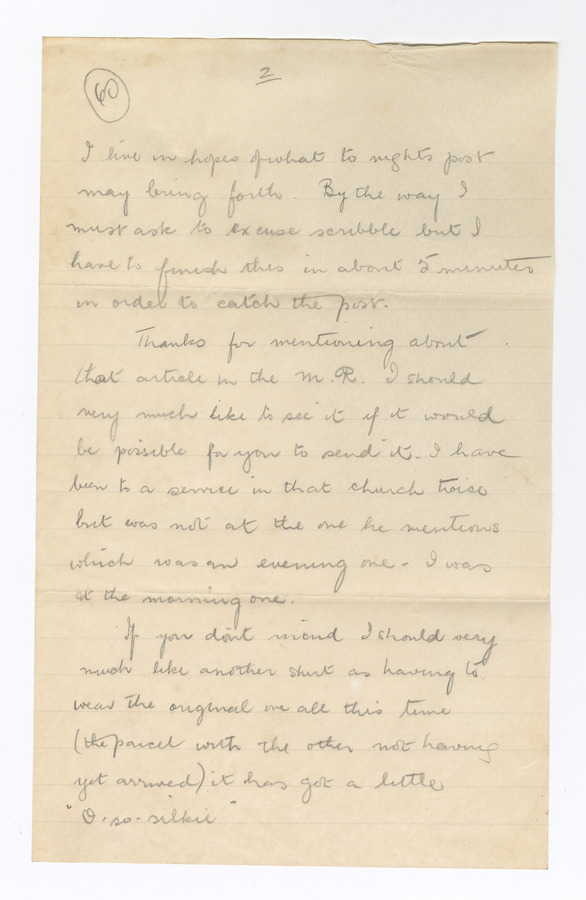 60
2
I live in hopes of what to nights post
may bring forth. By the way I
must ask to excuse scribble but I
have to finish this in about 5 minutes
in order to catch the post.
Thanks for mentioning about
that article in the M.R. I should
very much like to see it if it would
be possible for you to send it. I have
been to a service in that church twice
but was not at the one he mentions
which was an evening one - I was
at the morning one.
If you dont mind I should very
much like another shirt as having to
wear the original one all this time
(the parcel with the other not having
yet arrived) it has got a little
"O-so-silkie"